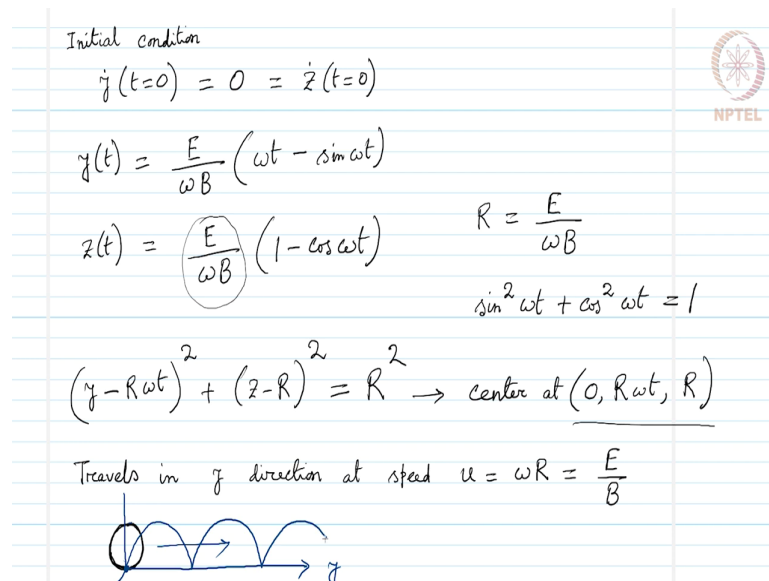 Initial condition
NPTEL
ẏ(t=0) = 0 = ż(t=0)
y(t) = E/ωB (ωt - sin ωt)
z(t) = E/ωB (1 - cos ωt)
R = E/ωB
sin² ωt + cos² ωt = 1
(y - Rωt)² + (z - R)² = R² → center at (0, Rωt, R)
Travels in y direction at speed u = ωR = E/B
y